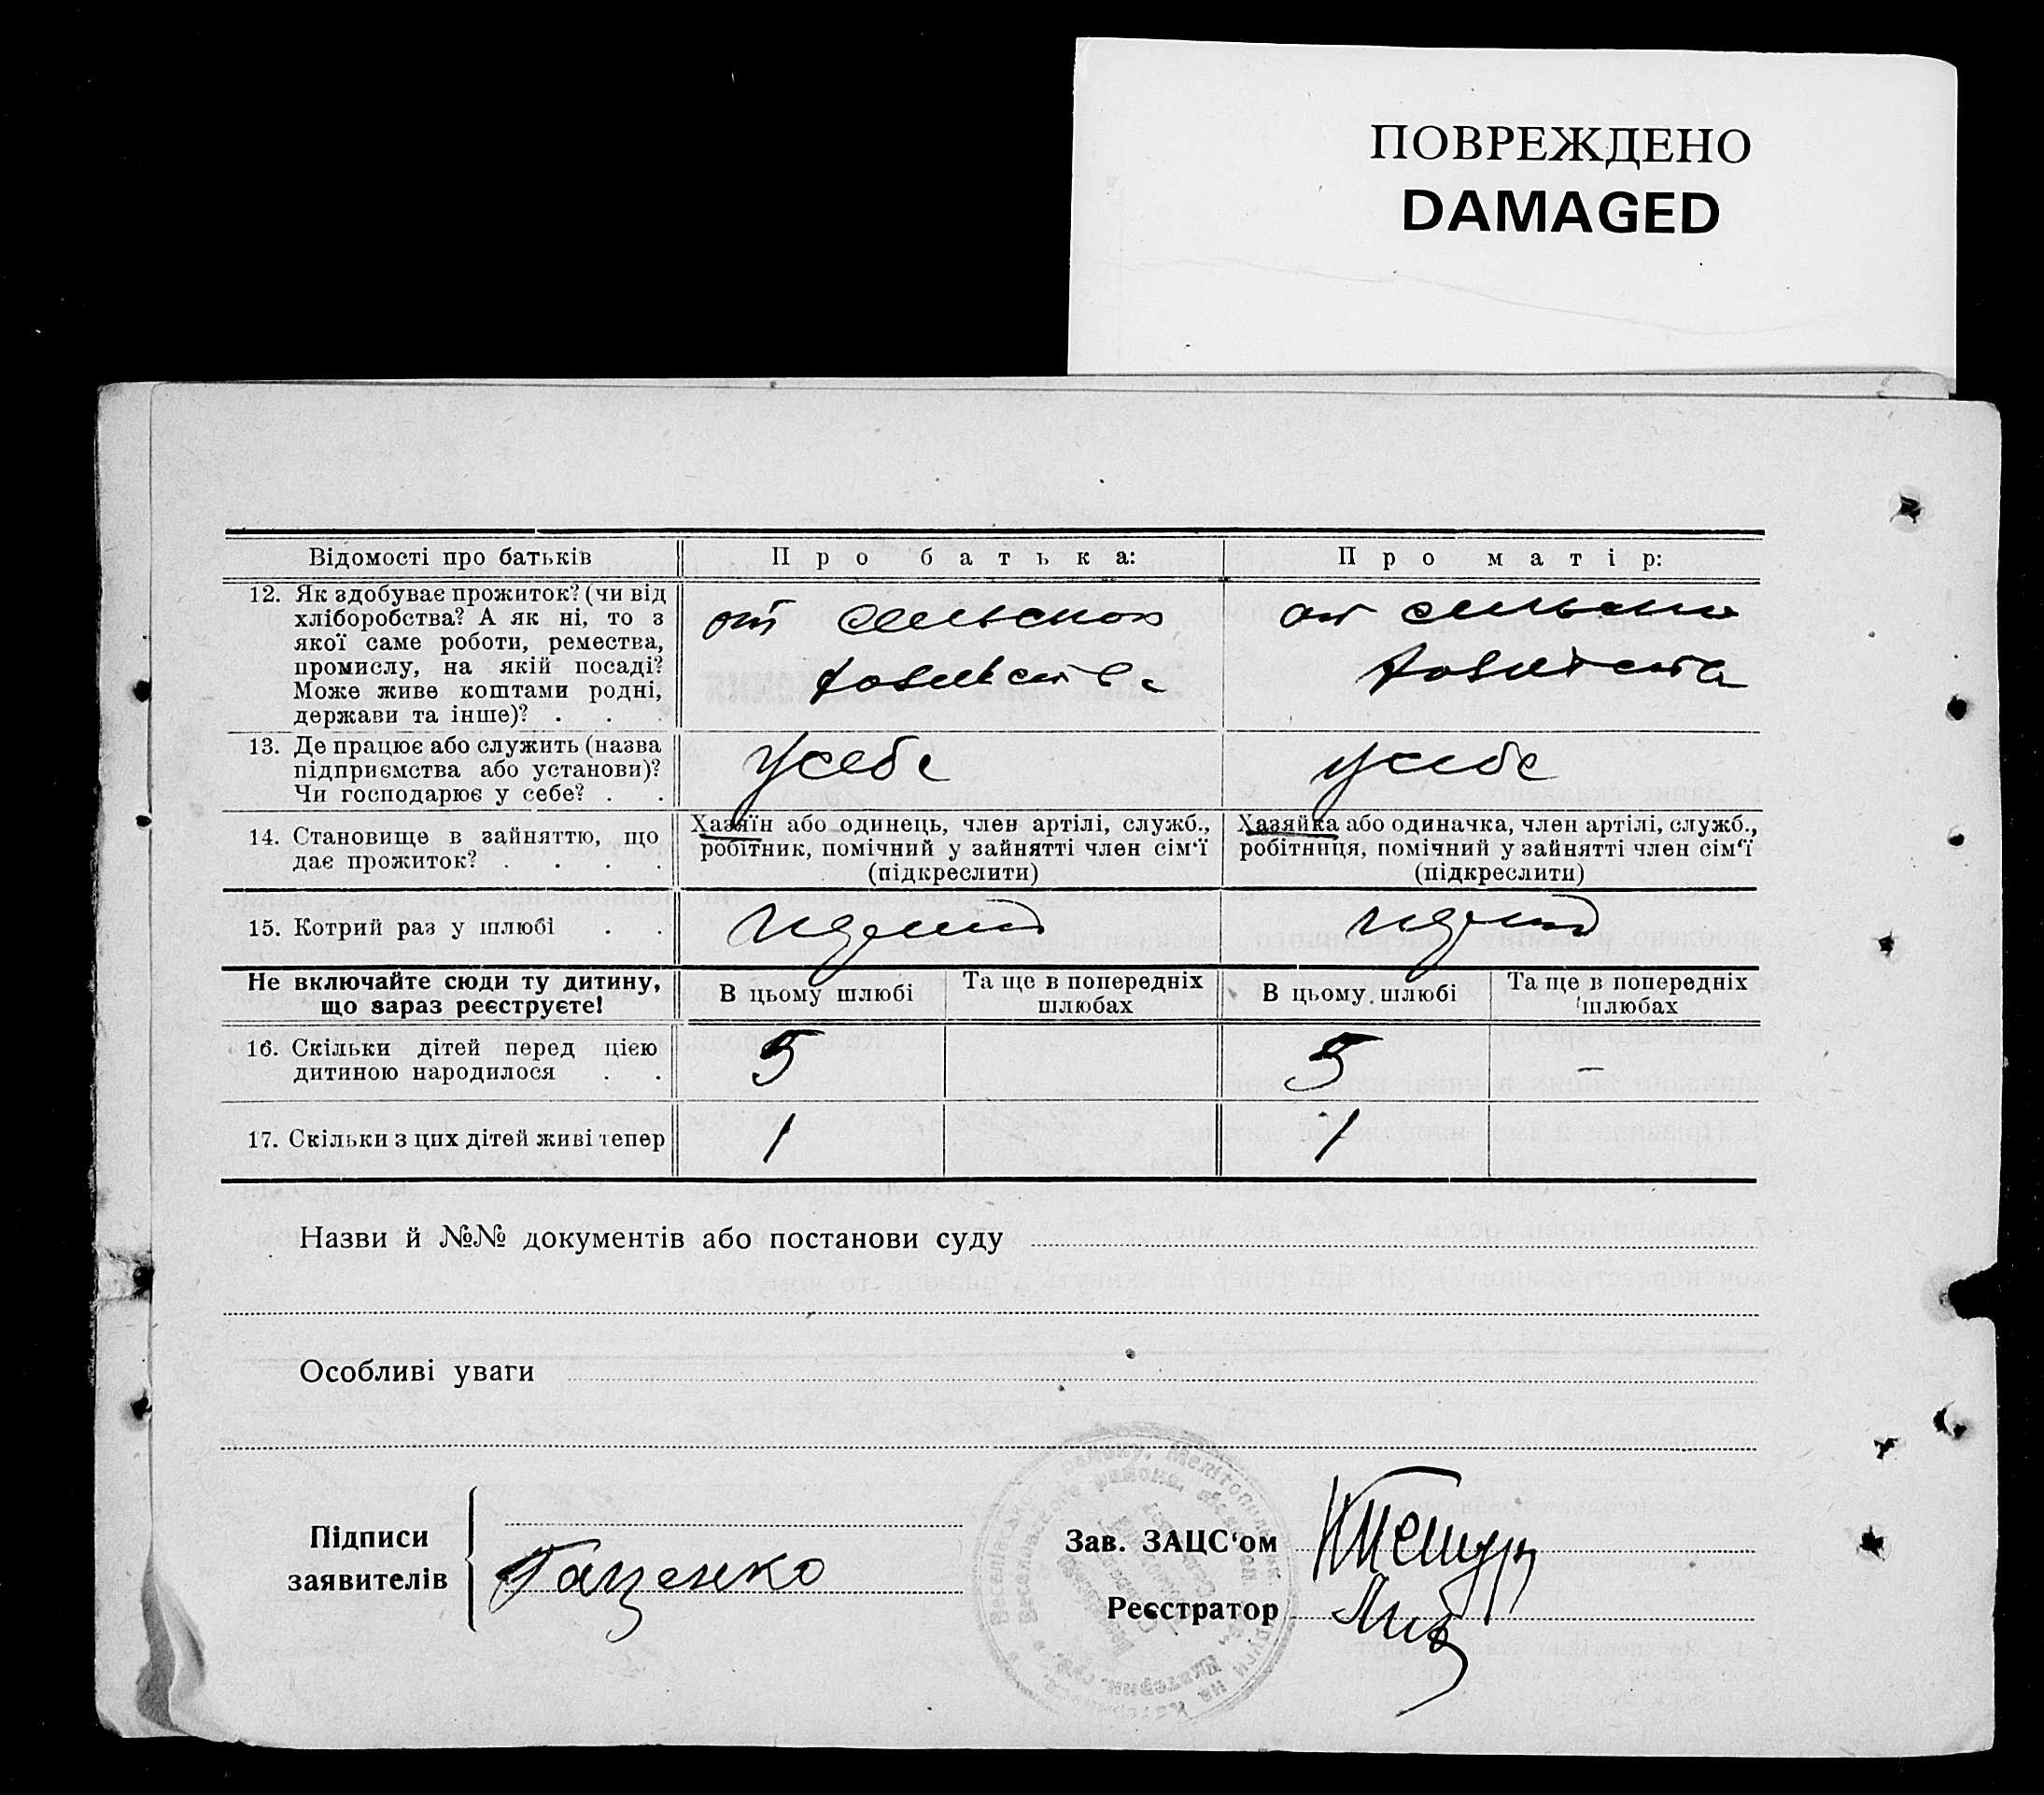 ПОВРЕЖДЕНО
DAMAGED
Відомості про батьків
Про батька:
Про матір:
12. Як здобуває прожиток? (чи від
хліборобства? А як ні, то з
якої саме роботи, ремества,
промислу, на якій посаді?
Може живе коштами родні,
держави та інше)? . . .
от сельског
хозяйства
от сельског
хозяйства
13. Де працює або служить (назва
підприємства або установи)?
Чи господарює у себе? . .
У себе
у себе
14. Становище в зайняттю, що
дає прожиток? . . . .
Хазяїн або одинець, член артілі, служб.,
робітник, помічний у зайнятті член сім'ї
(підкреслити)
Хазяйка або одиначка, член артілі, служб.,
робітниця, помічний у зайнятті член сім'ї
(підкреслити)
15. Котрий раз у шлюбі . .
Не включайте сюди ту дитину,
що зараз реєструєте!
В цьому шлюбі
Та ще в попередніх
шлюбах
В цьому шлюбі
Та ще в попередніх
шлюбах
16. Скільки дітей перед цією
дитиною народилося . .
5
5
—
17. Скільки з цих дітей живі тепер
1
1
Назви й №№ документів або постанови суду
Особливі уваги
Підписи
заявителів
Гаценко
Зав. ЗАЦС'ом
Реєстратор